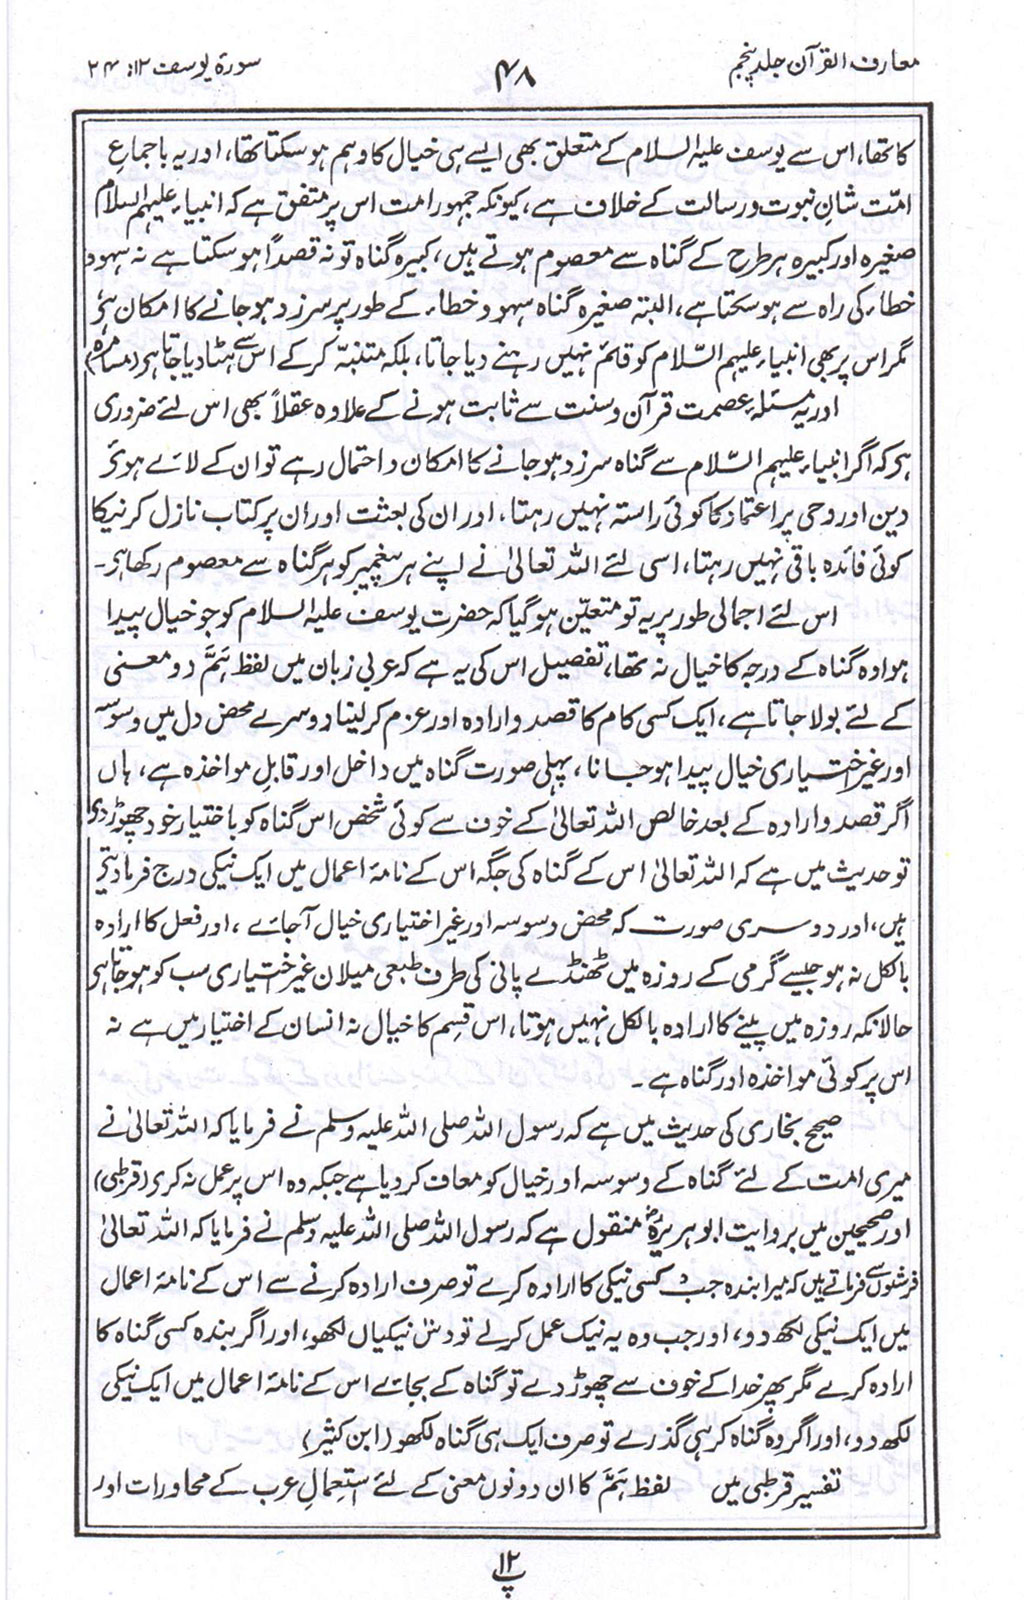 معارف القرآن جلد پنجم
۴۸
سورۃ یوسف ۱۲: ۲۴
کا تھا، اس سے یوسف علیہ السلام کے متعلق بھی ایسے ہی خیال کا وہم ہو سکتا تھا، اور یہ باجماعِ
امّت شانِ نبوت و رسالت کے خلاف ہے، کیونکہ جمہور امت اس پر متفق ہے کہ انبیاء علیہم السلام
صغیرہ اور کبیرہ ہر طرح کے گناہ سے معصوم ہوتے ہیں، کبیرہ گناہ تو نہ قصداً ہو سکتا ہے نہ سہو و
خطاء کی راہ سے ہو سکتا ہے، البتہ صغیرہ گناہ سہو و خطاء کے طور پر سرزد ہو جانے کا امکان ہے،
مگر اس پر بھی انبیاء علیہم السّلام کو قائم نہیں رہنے دیا جاتا، بلکہ متنبہّ کر کے اس سے ہٹا دیا جاتا ہے (مسامرہ)
اور یہ مسئلہ عصمت قرآن و سنت سے ثابت ہونے کے علاوہ عقلاً بھی اس لئے ضروری
ہے کہ اگر انبیاء علیہم السّلام سے گناہ سرزد ہو جانے کا امکان و احتمال رہے تو ان کے لائے ہوئے
دین اور وحی پر اعتماد کا کوئی راستہ نہیں رہتا، اور ان کی بعثت اور ان پر کتاب نازل کرنیکا
کوئی فائدہ باقی نہیں رہتا، اسی لئے اللہ تعالیٰ نے اپنے ہر پیغمبر کو ہر گناہ سے معصوم رکھا ہے۔
اس لئے اجمالی طور پر یہ تو متعیّن ہو گیا کہ حضرت یوسف علیہ السلام کو جو خیال پیدا
ہوا وہ گناہ کے درجہ کا خیال نہ تھا، تفصیل اس کی یہ ہے کہ عربی زبان میں لفظ ہَمَّ دو معنی
کے لئے بولا جاتا ہے، ایک کسی کام کا قصد و ارادہ اور عزم کر لینا، دوسرے محض دل میں وسوسہ
اور غیر اختیاری خیال پیدا ہو جانا، پہلی صورت گناہ میں داخل اور قابلِ مواخذہ ہے، ہاں
اگر قصد و ارادہ کے بعد خالص اللہ تعالیٰ کے خوف سے کوئی شخص اس گناہ کو باختیار خود چھوڑ دے
تو حدیث میں ہے کہ اللہ تعالیٰ اس کے گناہ کی جگہ اس کے نامۂ اعمال میں ایک نیکی درج فرما دیتے
ہیں، اور دوسری صورت کہ محض وسوسہ اور غیر اختیاری خیال آجائے، اور فعل کا ارادہ
بالکل نہ ہو جیسے گرمی کے روزہ میں ٹھنڈے پانی کی طرف طبعی میلان غیر اختیاری سب کو ہو جاتا ہے
حالانکہ روزہ میں پینے کا ارادہ بالکل نہیں ہوتا، اس قسم کا خیال نہ انسان کے اختیار میں ہے نہ
اس پر کوئی مواخذہ اور گناہ ہے۔
صحیح بخاری کی حدیث میں ہے کہ رسول اللہ صلی اللہ علیہ وسلم نے فرمایا کہ اللہ تعالیٰ نے
میری امت کے لئے گناہ کے وسوسہ اور خیال کو معاف کر دیا ہے جبکہ وہ اس پر عمل نہ کرے (قرطبی)
اور صحیحین میں بروایت ابوہریرہؓ منقول ہے کہ رسول اللہ صلی اللہ علیہ وسلم نے فرمایا کہ اللہ تعالیٰ
فرشتوں سے فرماتے ہیں کہ میرا بندہ جب کسی نیکی کا ارادہ کرے تو صرف ارادہ کرنے سے اس کے نامۂ اعمال
میں ایک نیکی لکھ دو، اور جب وہ یہ نیک عمل کر لے تو دس نیکیاں لکھو، اور اگر بندہ کسی گناہ کا
ارادہ کرے مگر پھر خدا کے خوف سے چھوڑ دے تو گناہ کے بجائے اس کے نامۂ اعمال میں ایک نیکی
لکھ دو، اور اگر وہ گناہ کر ہی گذرے تو صرف ایک ہی گناہ لکھو (ابن کثیر)
تفسیر قرطبی میں لفظ ہَمَّ کا ان دونوں معنی کے لئے استعمال عرب کے محاورات اور
پ ۱۲